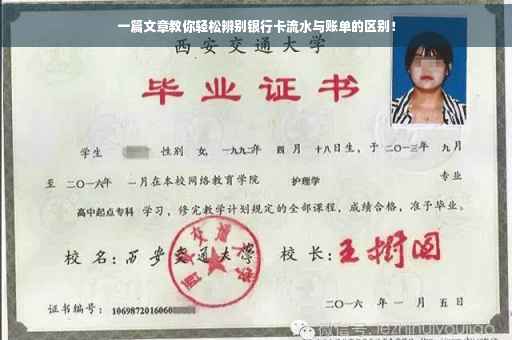 一篇文章教你轻松辨别银行卡流水与账单的区别！
西安交通大学
毕业证书
学生 性别 女，一九九二年 四月 十八日生，于二〇一三年 九月
至 二〇一六年 一月在本校网络教育学院 护理学 专业
高中起点专科 学习，修完教学计划规定的全部课程，成绩合格，准予毕业。
校名：西安交通大学 校长：王树国
证书编号：1069872016060
二〇一六年 一月 五日
微信号: jiezhihuiyoujiao